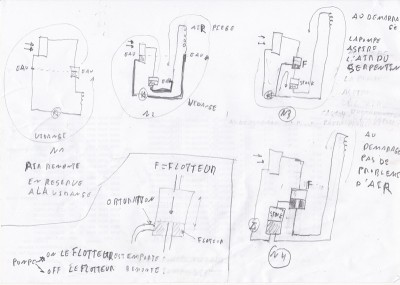 EAU
EAU
VIDANGE
N1
AIR REMONTE
EN RESERVE
A LA VIDANGE
AIR PIEGE
EAU
EAU
VIDANGE
AU DEMARRA
GE
LA POMPE
ASPIRE
L'AIR DU
SERPENTIN
F
N3
AU
DEMARRAGE
PAS DE
PROBLEME
D'AIR
F
N4
F = FLOTTEUR
OBTURATEUR
FLOTEUR
POMPE
ON LE FLOTTEUR EST EMPORTE
OFF LE FLOTTEUR REMONTE